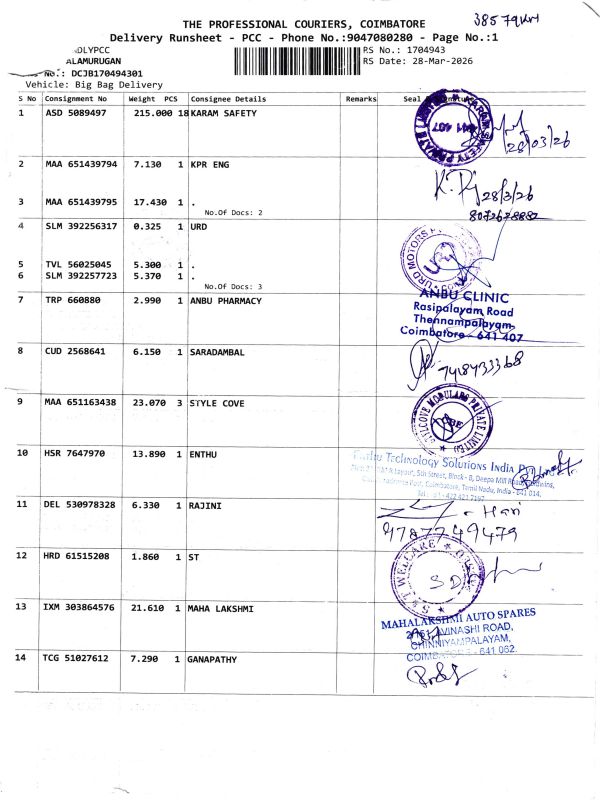 THE PROFESSIONAL COURIERS, COIMBATORE
38579km
Delivery Runsheet - PCC - Phone No.:9047080280 - Page No.:1
DLYPCC
RS No.: 1704943
ALAMURUGAN
RS Date: 28-Mar-2026
No.: DCJB170494301
Vehicle: Big Bag Delivery
S No Consignment No Weight PCS Consignee Details Remarks Seal
1 ASD 5089497 215.000 18 KARAM SAFETY
641 407
28/03/26
2 MAA 651439794 7.130 1 KPR ENG
28/3/26
3 MAA 651439795 17.430 1 .
No.Of Docs: 2
4 SLM 392256317 0.325 1 URD
URD MOTORS
5 TVL 56025045 5.300 1 .
6 SLM 392257723 5.370 1 .
No.Of Docs: 3
7 TRP 660880 2.990 1 ANBU PHARMACY
ANBU CLINIC
Rasipalayam Road
Thennampalayam,
Coimbatore - 641 407
8 CUD 2568641 6.150 1 SARADAMBAL
7418433368
9 MAA 651163438 23.070 3 STYLE COVE
PRIVATE LIMITED
10 HSR 7647970 13.890 1 ENTHU
Enthu Technology Solutions India
11 DEL 530978328 6.330 1 RAJINI
- Hari
9787749479
12 HRD 61515208 1.860 1 ST
13 IXM 303864576 21.610 1 MAHA LAKSHMI
MAHALAKSHMI AUTO SPARES
AVINASHI ROAD,
CHINNIYAMPALAYAM,
641 062.
14 TCG 51027612 7.290 1 GANAPATHY